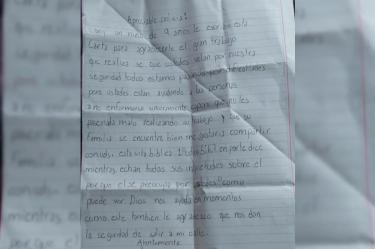 Apreciable señores:
soy un niño de 9 años le escribo esta
carta para agradecerle el gran trabajo
que realiza se que ustedes velan por nuestra
seguridad todos estamos pasando
para ustedes estan ayudando a las personas
a no enfermarse unicamente para que no les
pase nada malo realizando su trabajo y que su
familia se encuentre bien me gustaria compartir
con uds. esta cita biblica 1 Pedro 5:6,7 en parte dice
mientras echan todas sus inquietudes sobre el
porque el se preocupa por ustedes "como
puede ver Dios nos ayuda en momentos
como este tambien le agradezco que nos dan
la seguridad de salir a mi calle.
Atentamente